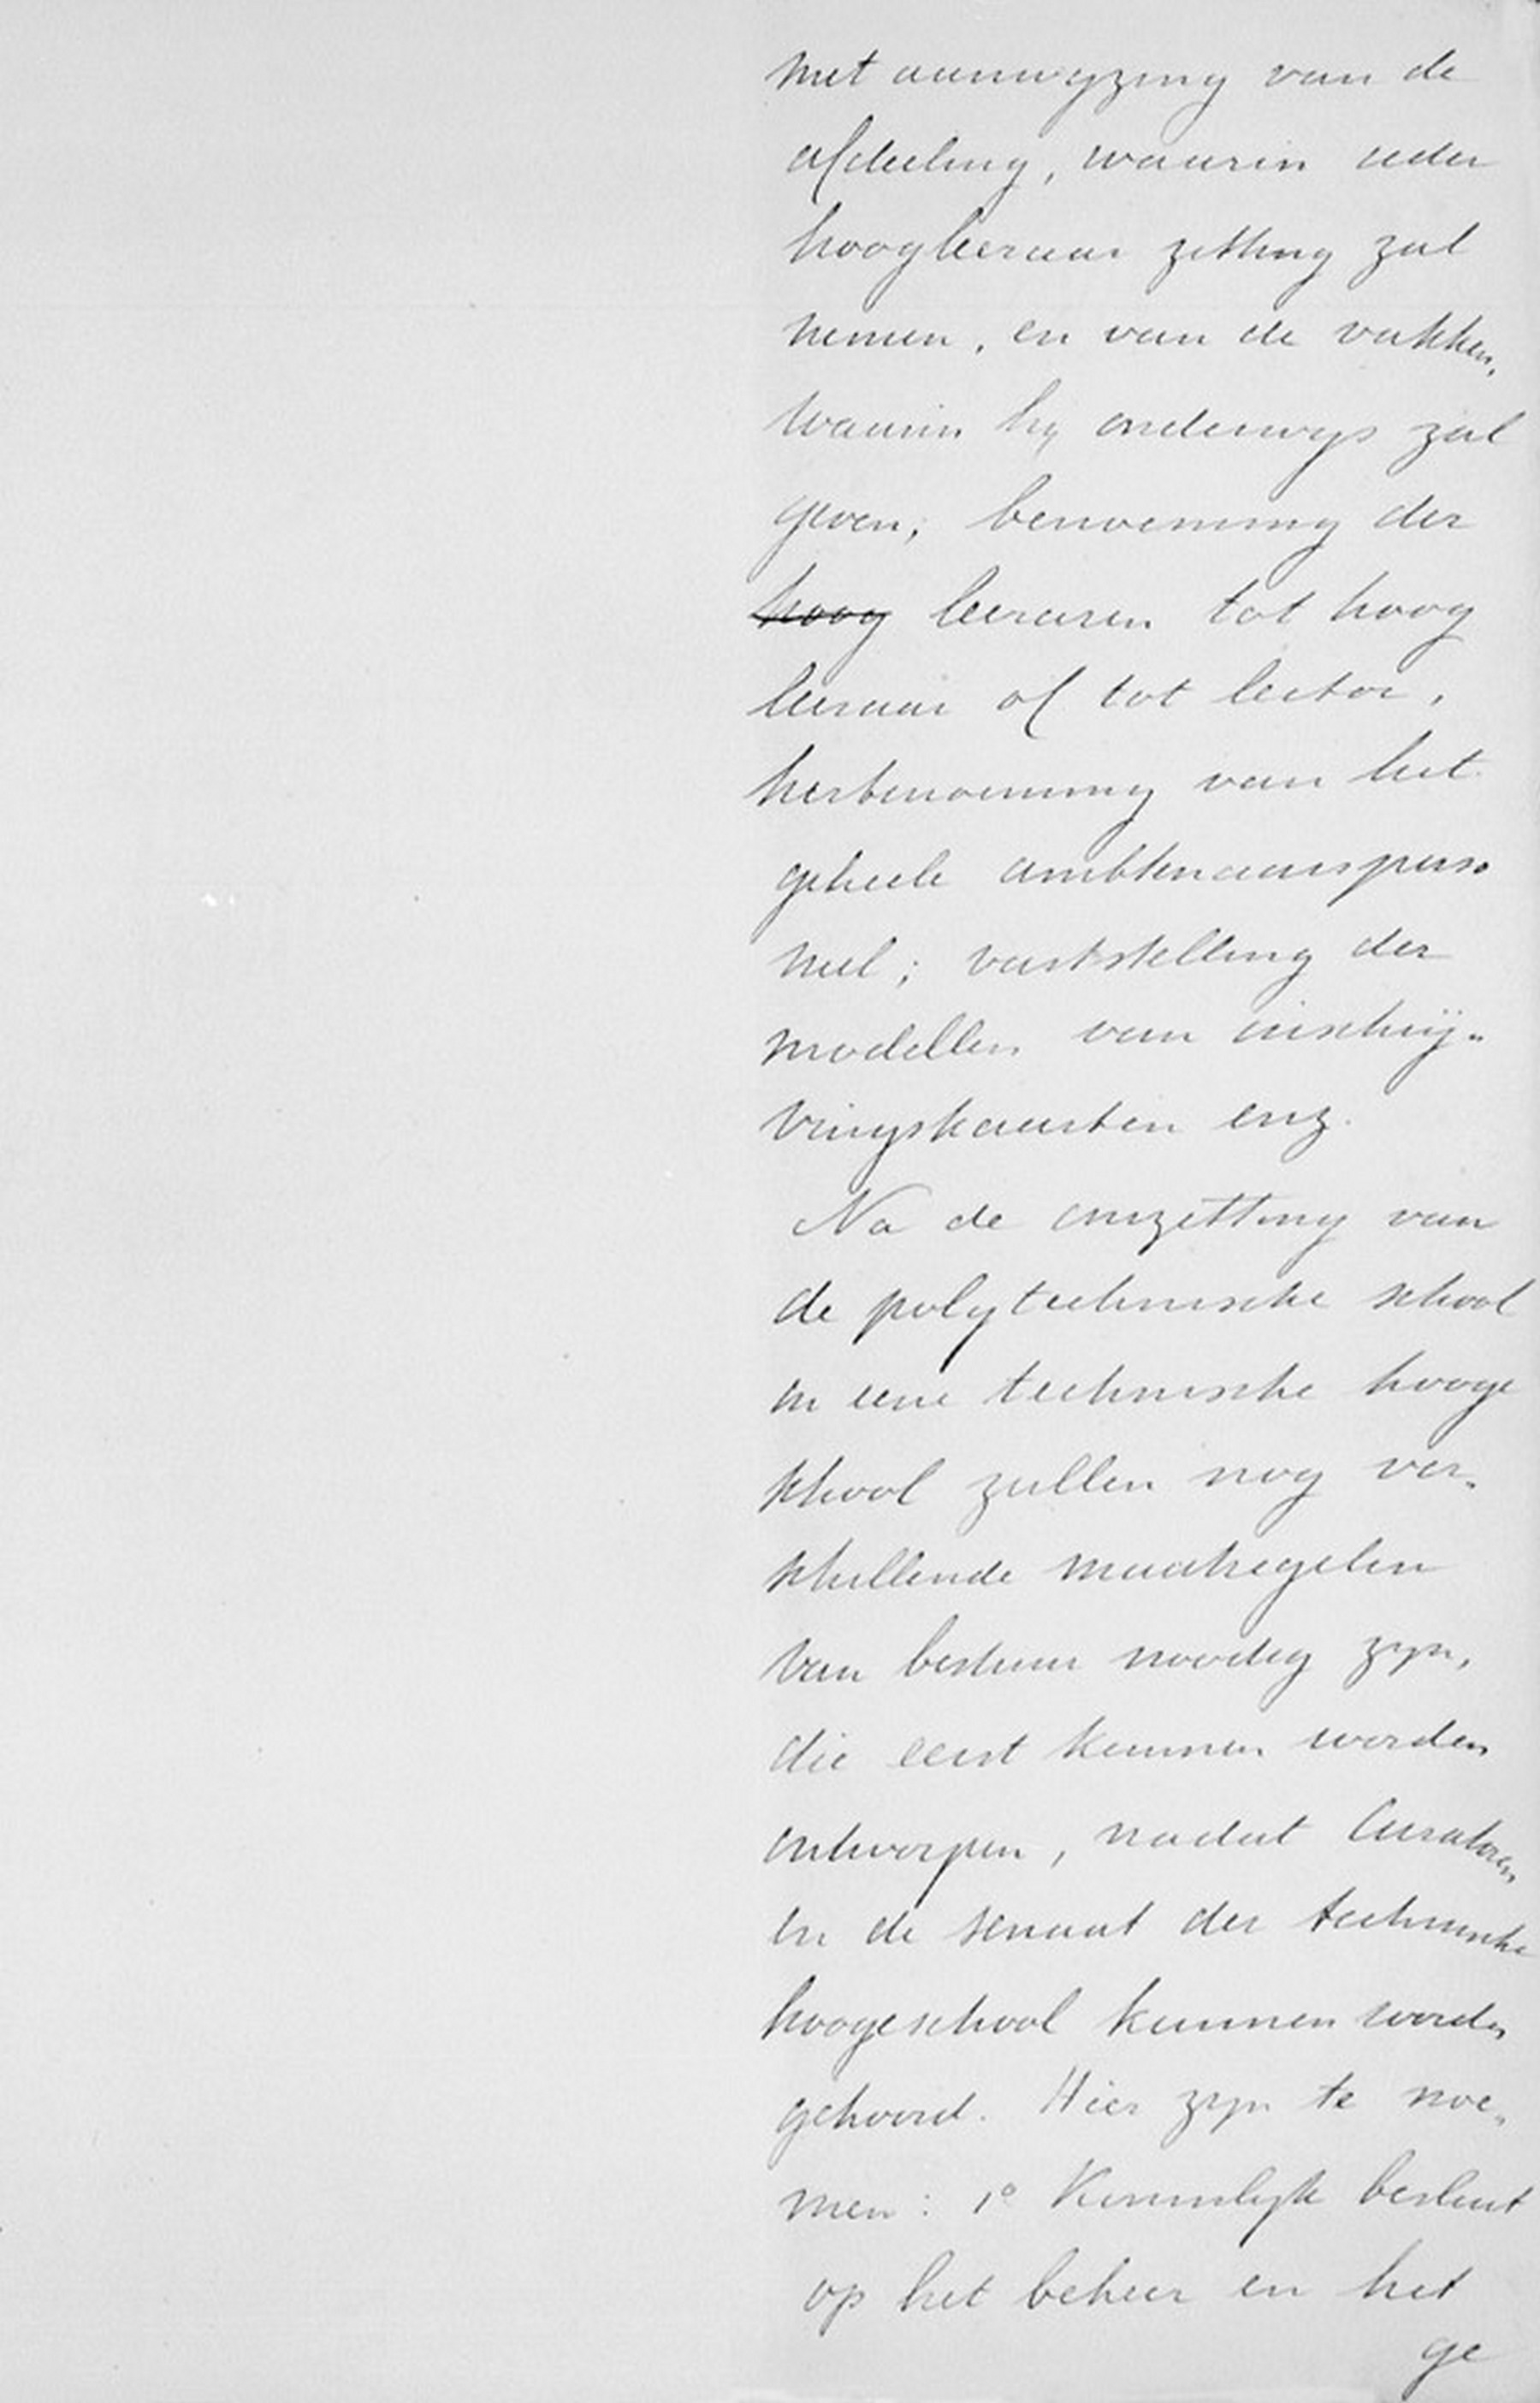 met aanwyzing van de
afdeeling, waarin ieder
hoogleeraar zitting zal
nemen, en van de vakken,
waarin hy onderwys zal
geven; benoeming der
hoog leeraren tot hoog
leeraar of tot lector,
herbenoeming van het
geheele ambtenaarsperso
neel; vaststelling der
modellen van inschrij„
vingskaarten enz.
Na de omzetting van
de polytechnische school
in eene technische hooge
school zullen nog ver„
schillende maatregelen
van bestuur noodig zyn,
die eerst kunnen worden
ontworpen, nadat Curatoren
en de senaat der technische
hoogeschool kunnen worden
gehoord. Hier zyn te noe„
men: 1o Koninklyk besluit
op het beheer en het
ge